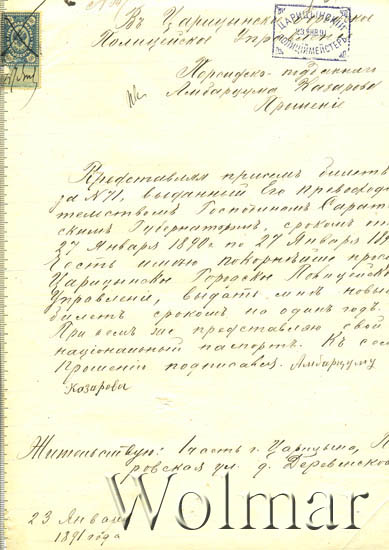 Въ Царицынское
Полицейское Управленіе
ЦАРИЦЫНСКІЙ
23 ЯНВ. 91
ПОЛИЦІЙМЕЙСТЕРЪ
Персидско-подданнаго
Амбарцума Казарова
Прошеніе
Представляя присемъ билетъ
за №71, выданный Его Превосходи-
тельствомъ Господиномъ Сарат
скимъ Губернаторомъ, срокомъ
27 Января 1890 г по 27 Января 18
Честь имѣю покорнѣйше прос
Царицынское Городское Полицейско
Управленіе, выдать мнѣ новый
билетъ срокомъ на одинъ годъ.
При семъ же представляю свой
національный паспортъ. Къ сем
прошенію подписався. Амбарцуму
Казарови
Жительствую: 1 часть г. Царицына,
ровская ул. д. Деревенско
23 Января
1891 года
Wolmar